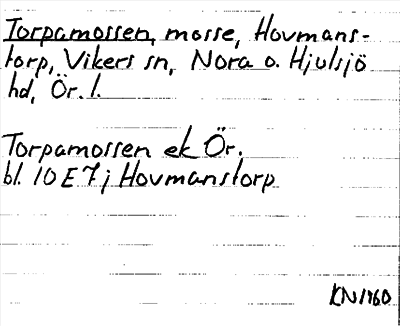 Torpamossen, mosse, Hovmans-
torp, Vikers sn, Nora o. Hjulsjö
hd, Ör. l.
Torpamossen ek Ör.
bl. 10 E 7 j Hovmanstorp
KN 1960